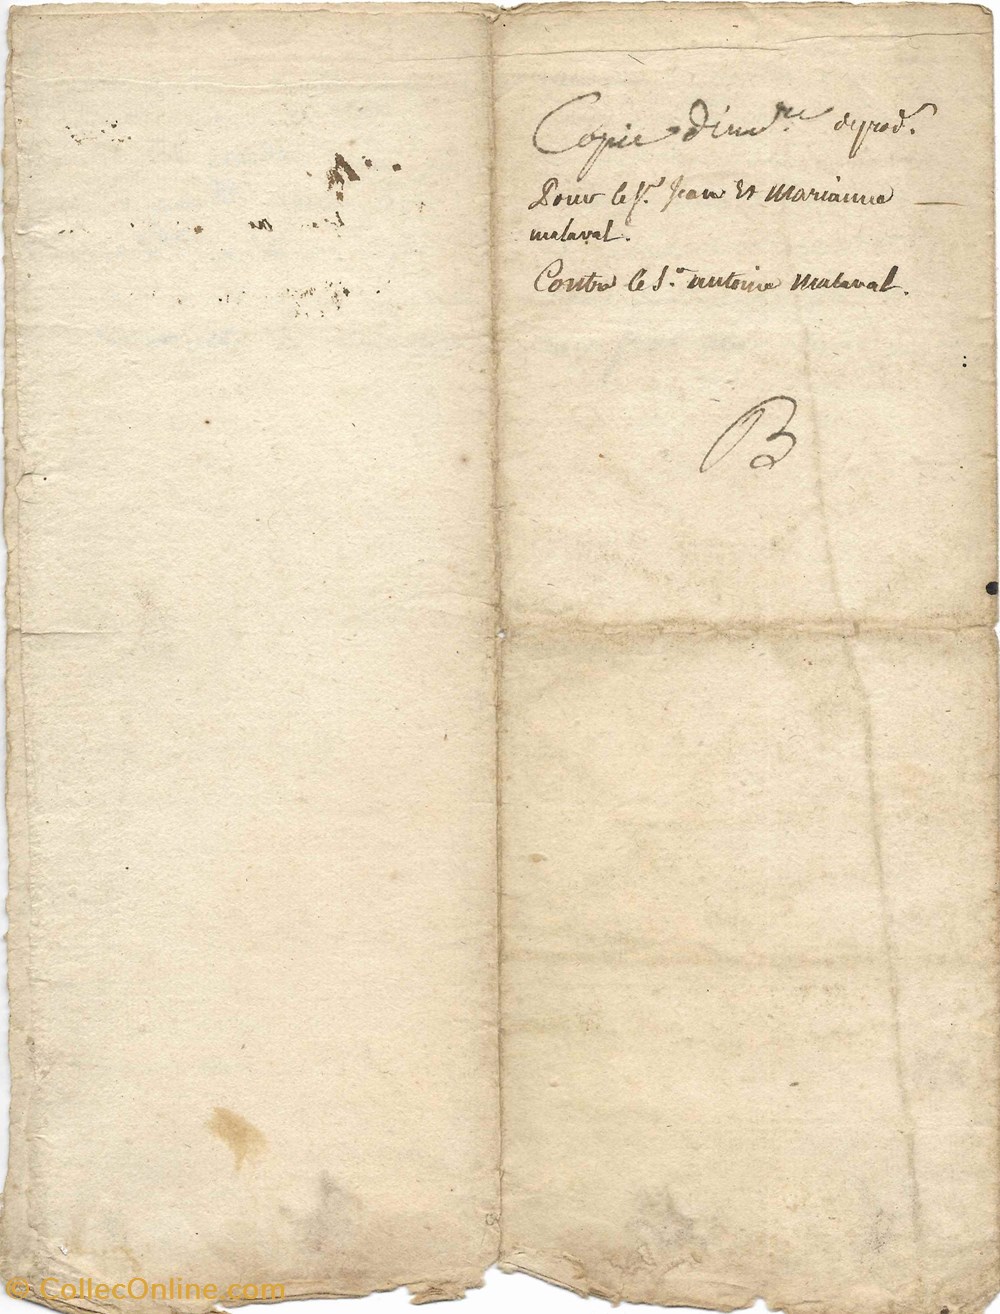 Copie d'invre deprod.
Pour le Sr. Jean Et Marianne
malaval.
Contre le Sr. antoine Malaval.
B
© CollecOnline.com